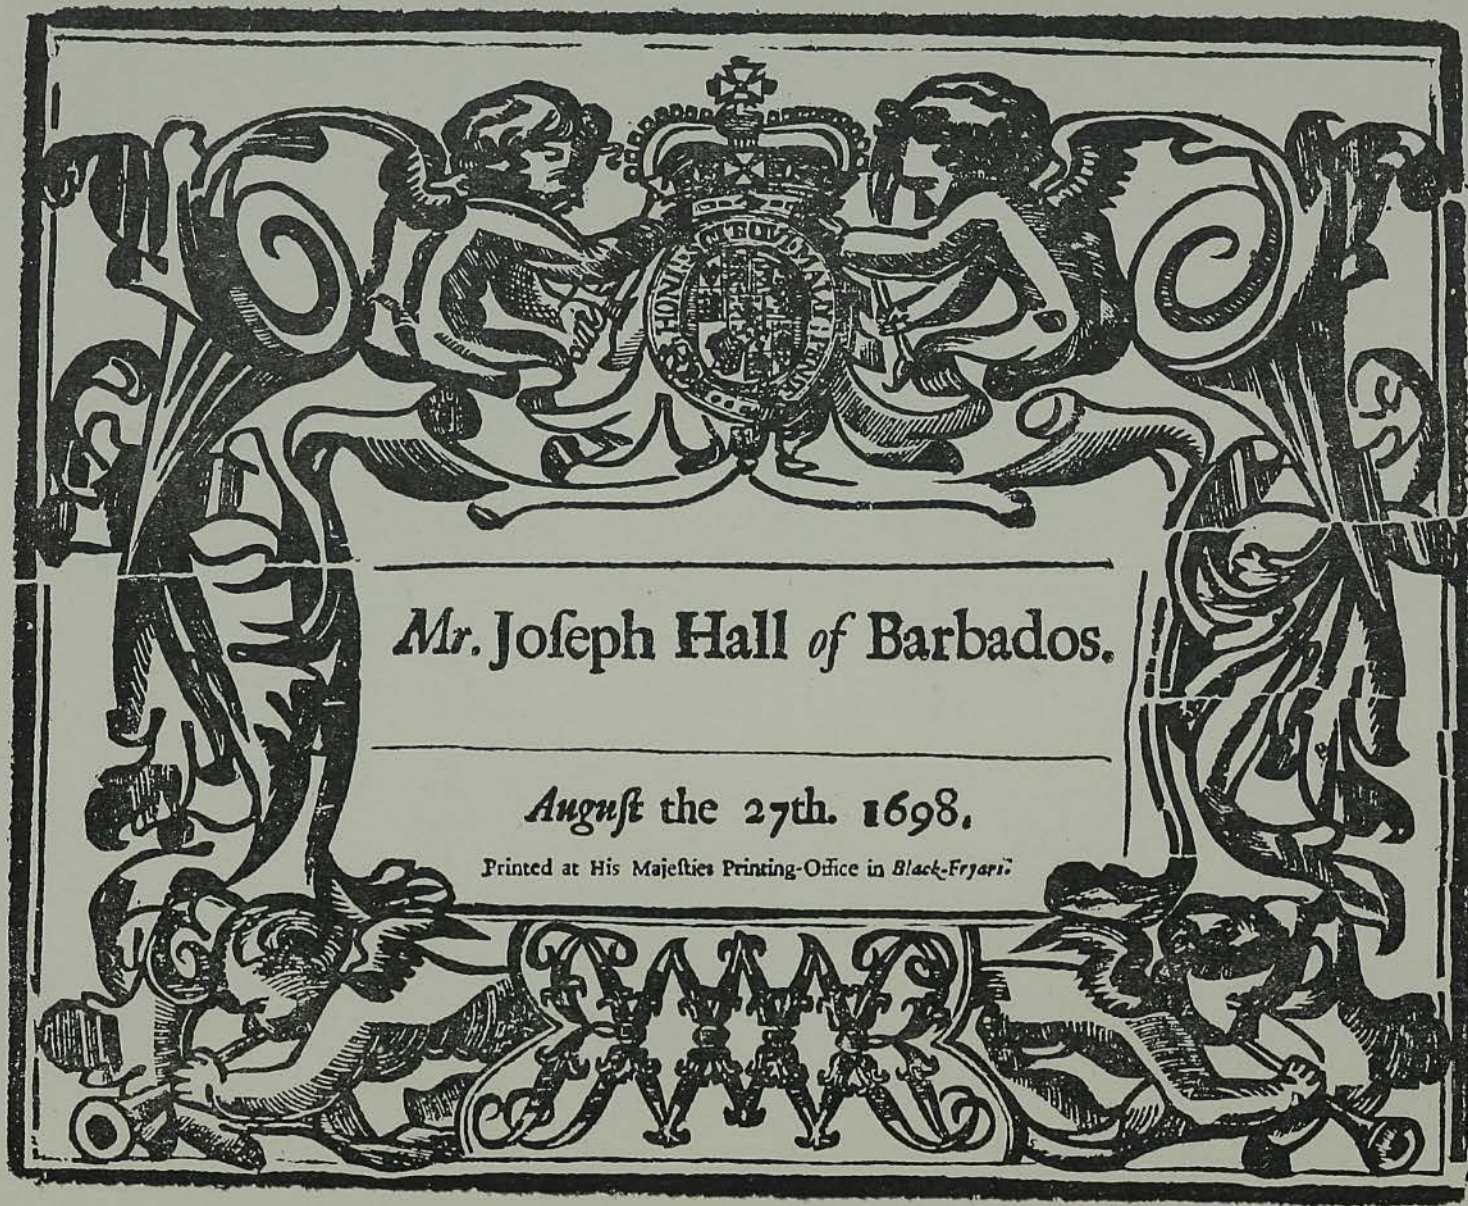 HONI SOIT QVI MAL Y PENSE
Mr. Joſeph Hall of Barbados.
Auguſt the 27th. 1698.
Printed at His Majeſties Printing-Office in Black-Fryars.